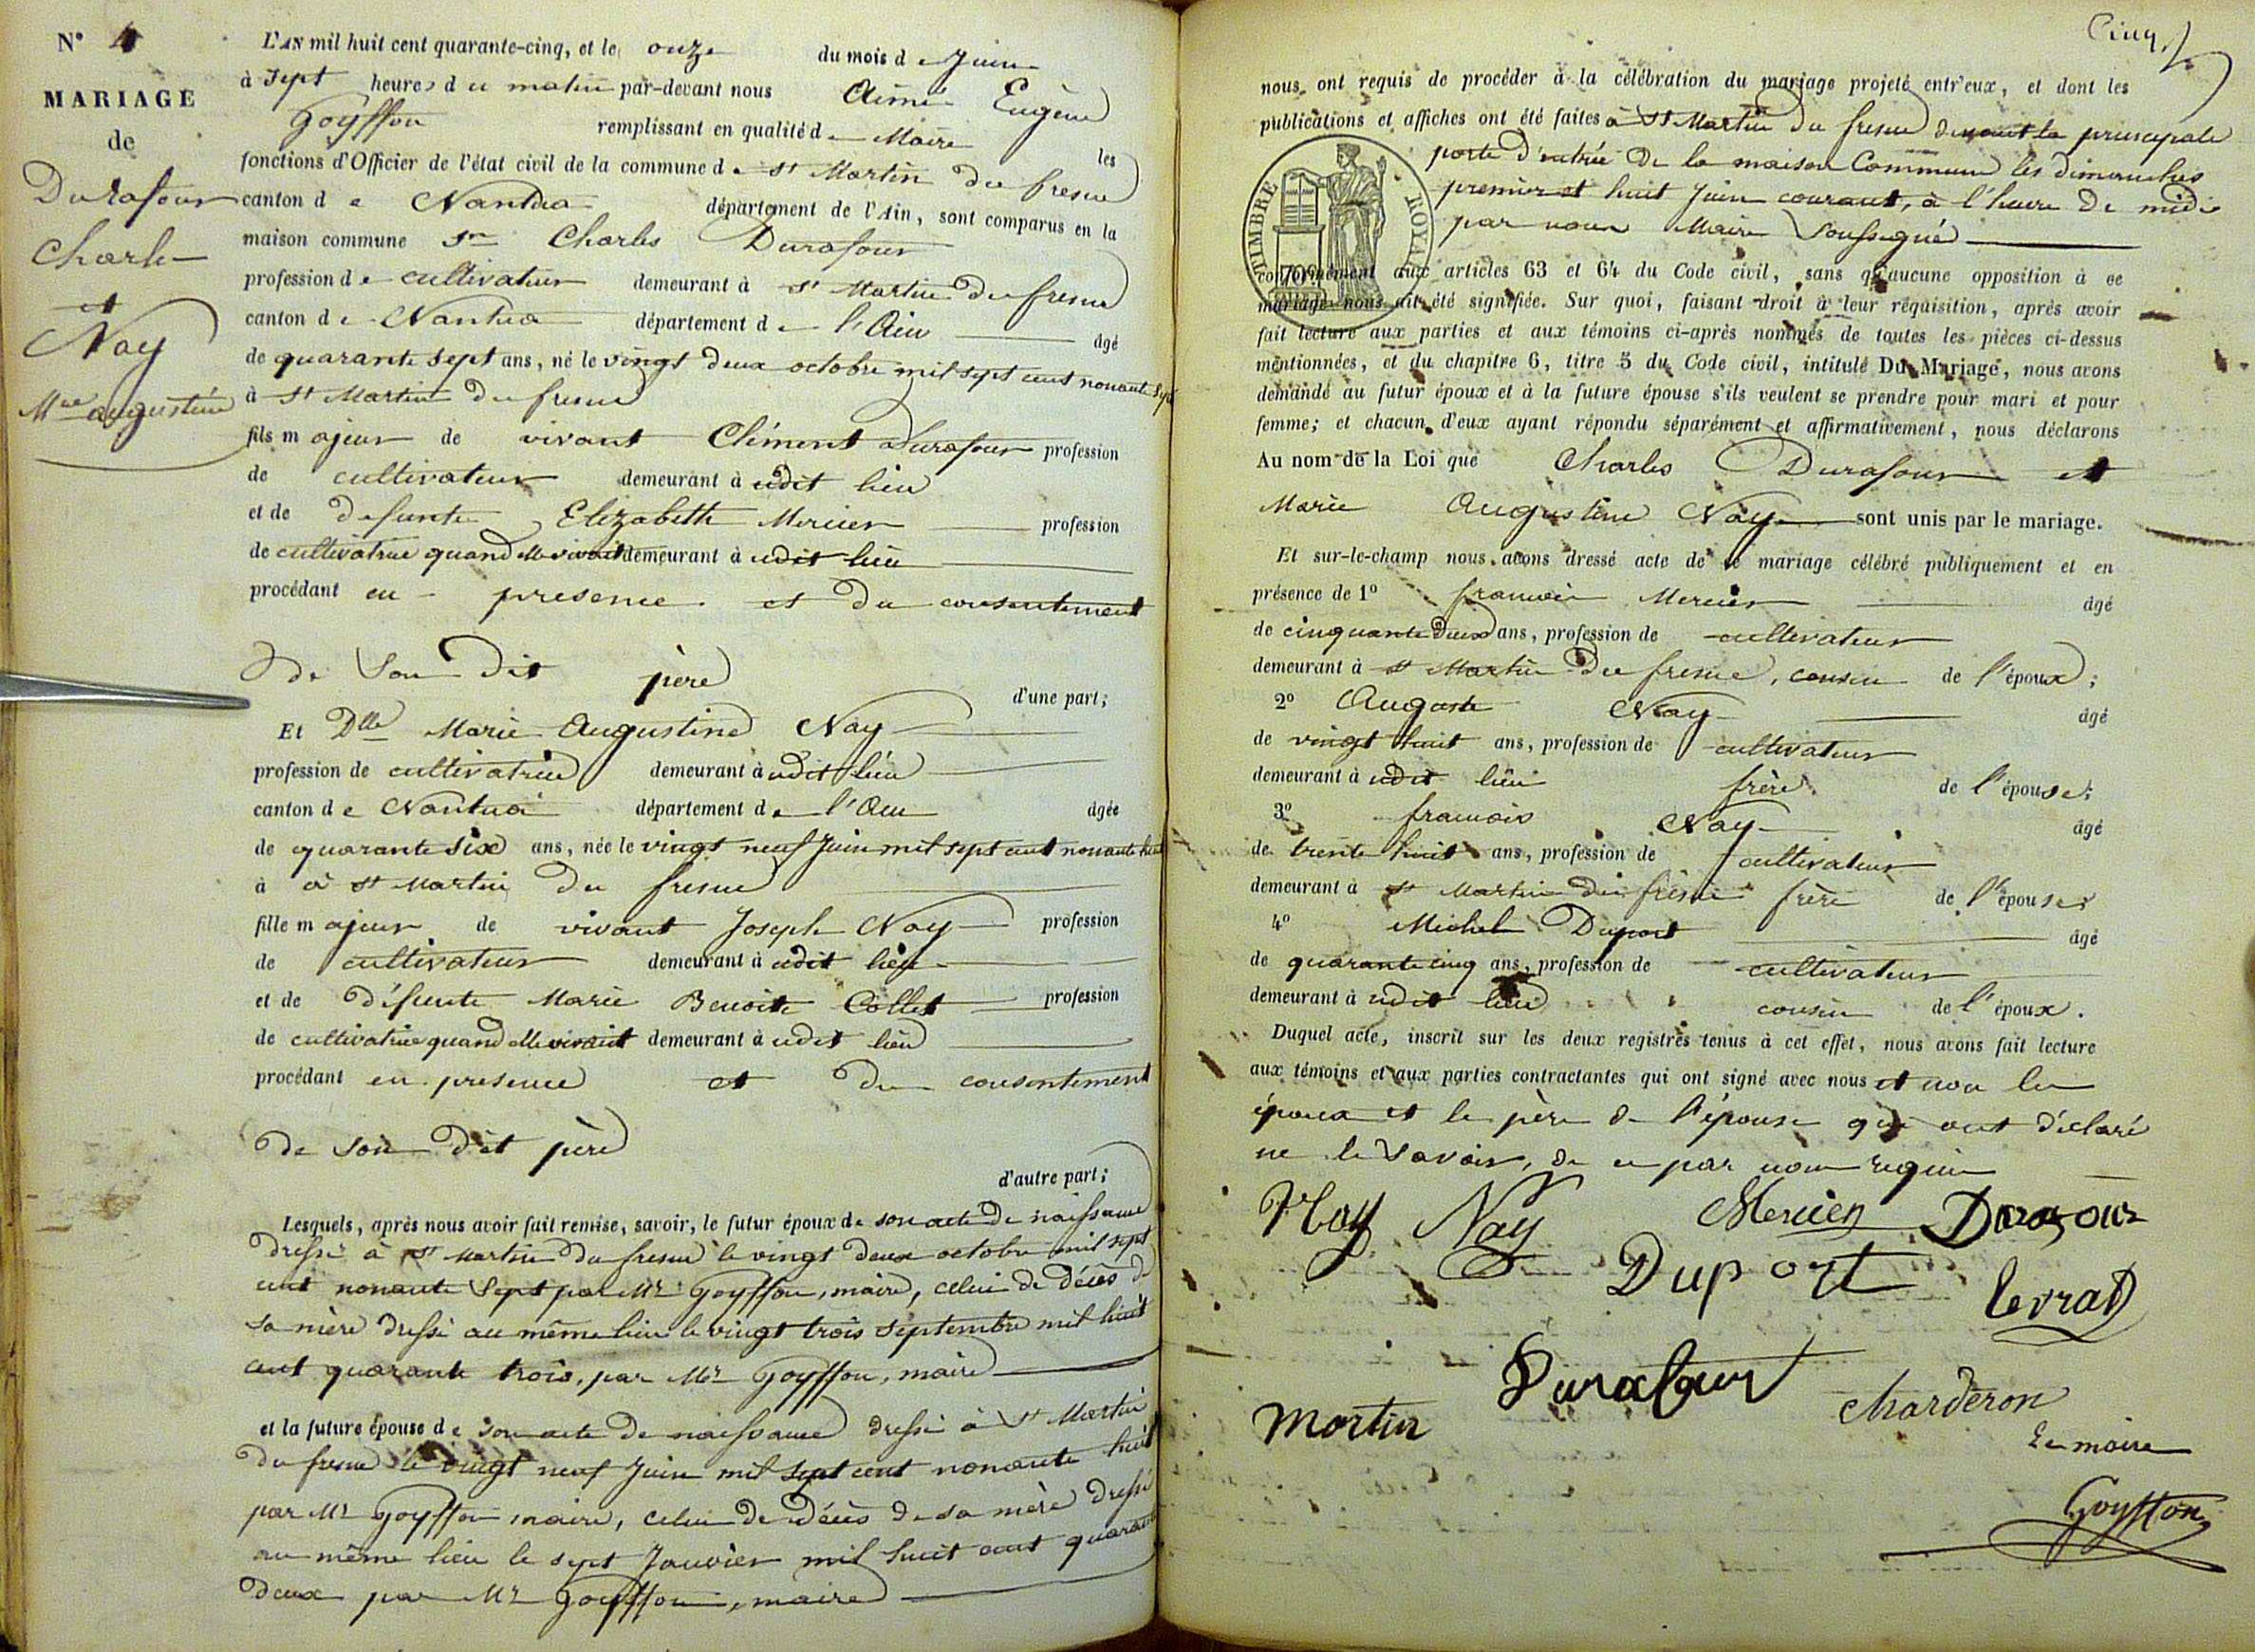 N° 4
MARIAGE
de
Durafour
Charles
et
Nay
Mie augustine
L'AN mil huit cent quarante-cinq, et le onze du mois de Juin
à sept heures du matin par-devant nous Aimé Eugène
Goyffon remplissant en qualité de Maire les
fonctions d'Officier de l'état civil de la commune de St Martin du fresne
canton de Nantua département de l'Ain, sont comparus en la
maison commune Sr Charles Durafour
profession de cultivateur demeurant à St Martin du fresne
canton de Nantua département de l'Ain âgé
de quarante sept ans, né le vingt deux octobre mil sept cent nonante sept
à St Martin du fresne
fils majeur de vivant Clément Durafour profession
de cultivateur demeurant à udit lieu
et de defunte Elizabeth Mercier profession
de cultivatrice quand elle vivait demeurant à udit lieu
procédant en presence et du consentement
de son dit père
d'une part;
Et Dlle Marie Augustine Nay
profession de cultivatrice demeurant à udit lieu
canton de Nantua département de l'Ain âgée
de quarante six ans, née le vingt neuf Juin mil sept cent nonante huit
à à St Martin du fresne
fille majeur de vivant Joseph Nay profession
de cultivateur demeurant à udit lieu
et de défunte Marie Benoite Collet profession
de cultivatrice quand elle vivait demeurant à udit lieu
procédant en presence et du consentement
de son dit père
d'autre part;
Lesquels, après nous avoir fait remise, savoir, le futur époux de son acte de naissance
dressé à St Martin du fresne le vingt deux octobre mil sept
cent nonante sept par Mr Goyffon, maire, celui de décès de
sa mère dressé au même lieu le vingt trois septembre mil huit
cent quarante trois, par Mr Goyffon, maire
et la future épouse de son acte de naissance dressé à St Martin
du fresne le vingt neuf Juin mil sept cent nonante huit
par Mr Goyffon maire, celui de décès de sa mère dressé
au même lieu le sept Janvier mil huit cent quarante
deux par Mr Goyffon, maire
Cinq
nous ont requis de procéder à la célébration du mariage projeté entr'eux, et dont les
publications et affiches ont été faites à St Martin du fresne devant la principale
porte d'entrée de la maison Commune les dimanches
premier et huit Juin courant, à l'heure de midi
par nous Maire soussigné
TIMBRE ROYAL
70c.
conformément aux articles 63 et 64 du Code civil, sans qu'aucune opposition à ce
mariage nous ait été signifiée. Sur quoi, faisant droit à leur réquisition, après avoir
fait lecture aux parties et aux témoins ci-après nommés de toutes les pièces ci-dessus
mentionnées, et du chapitre 6, titre 5 du Code civil, intitulé Du Mariage, nous avons
demandé au futur époux et à la future épouse s'ils veulent se prendre pour mari et pour
femme; et chacun d'eux ayant répondu séparément et affirmativement, nous déclarons
Au nom de la Loi que Charles Durafour et
Marie Augustine Nay sont unis par le mariage.
Et sur-le-champ nous avons dressé acte de ce mariage célébré publiquement et en
présence de 1° francois Mercier âgé
de cinquante deux ans, profession de cultivateur
demeurant à St Martin du fresne, cousin de l'époux;
2° Auguste Nay âgé
de vingt huit ans, profession de cultivateur
demeurant à udit lieu frère de l'épouse;
3° francois Nay âgé
de trente huit ans, profession de cultivateur
demeurant à St Martin du fresne frère de l'épouse;
4° Michel Duport âgé
de quarante cinq ans, profession de cultivateur
demeurant à udit lieu cousin de l'époux.
Duquel acte, inscrit sur les deux registres tenus à cet effet, nous avons fait lecture
aux témoins et aux parties contractantes qui ont signé avec nous et non les
époux et le père de l'épouse qui ont déclaré
ne le savoir, de ce par nous requis
Nay Nay Mercier Durafour
Duport Levrat
Durafour
Martin Charderon
Le maire
Goyffon